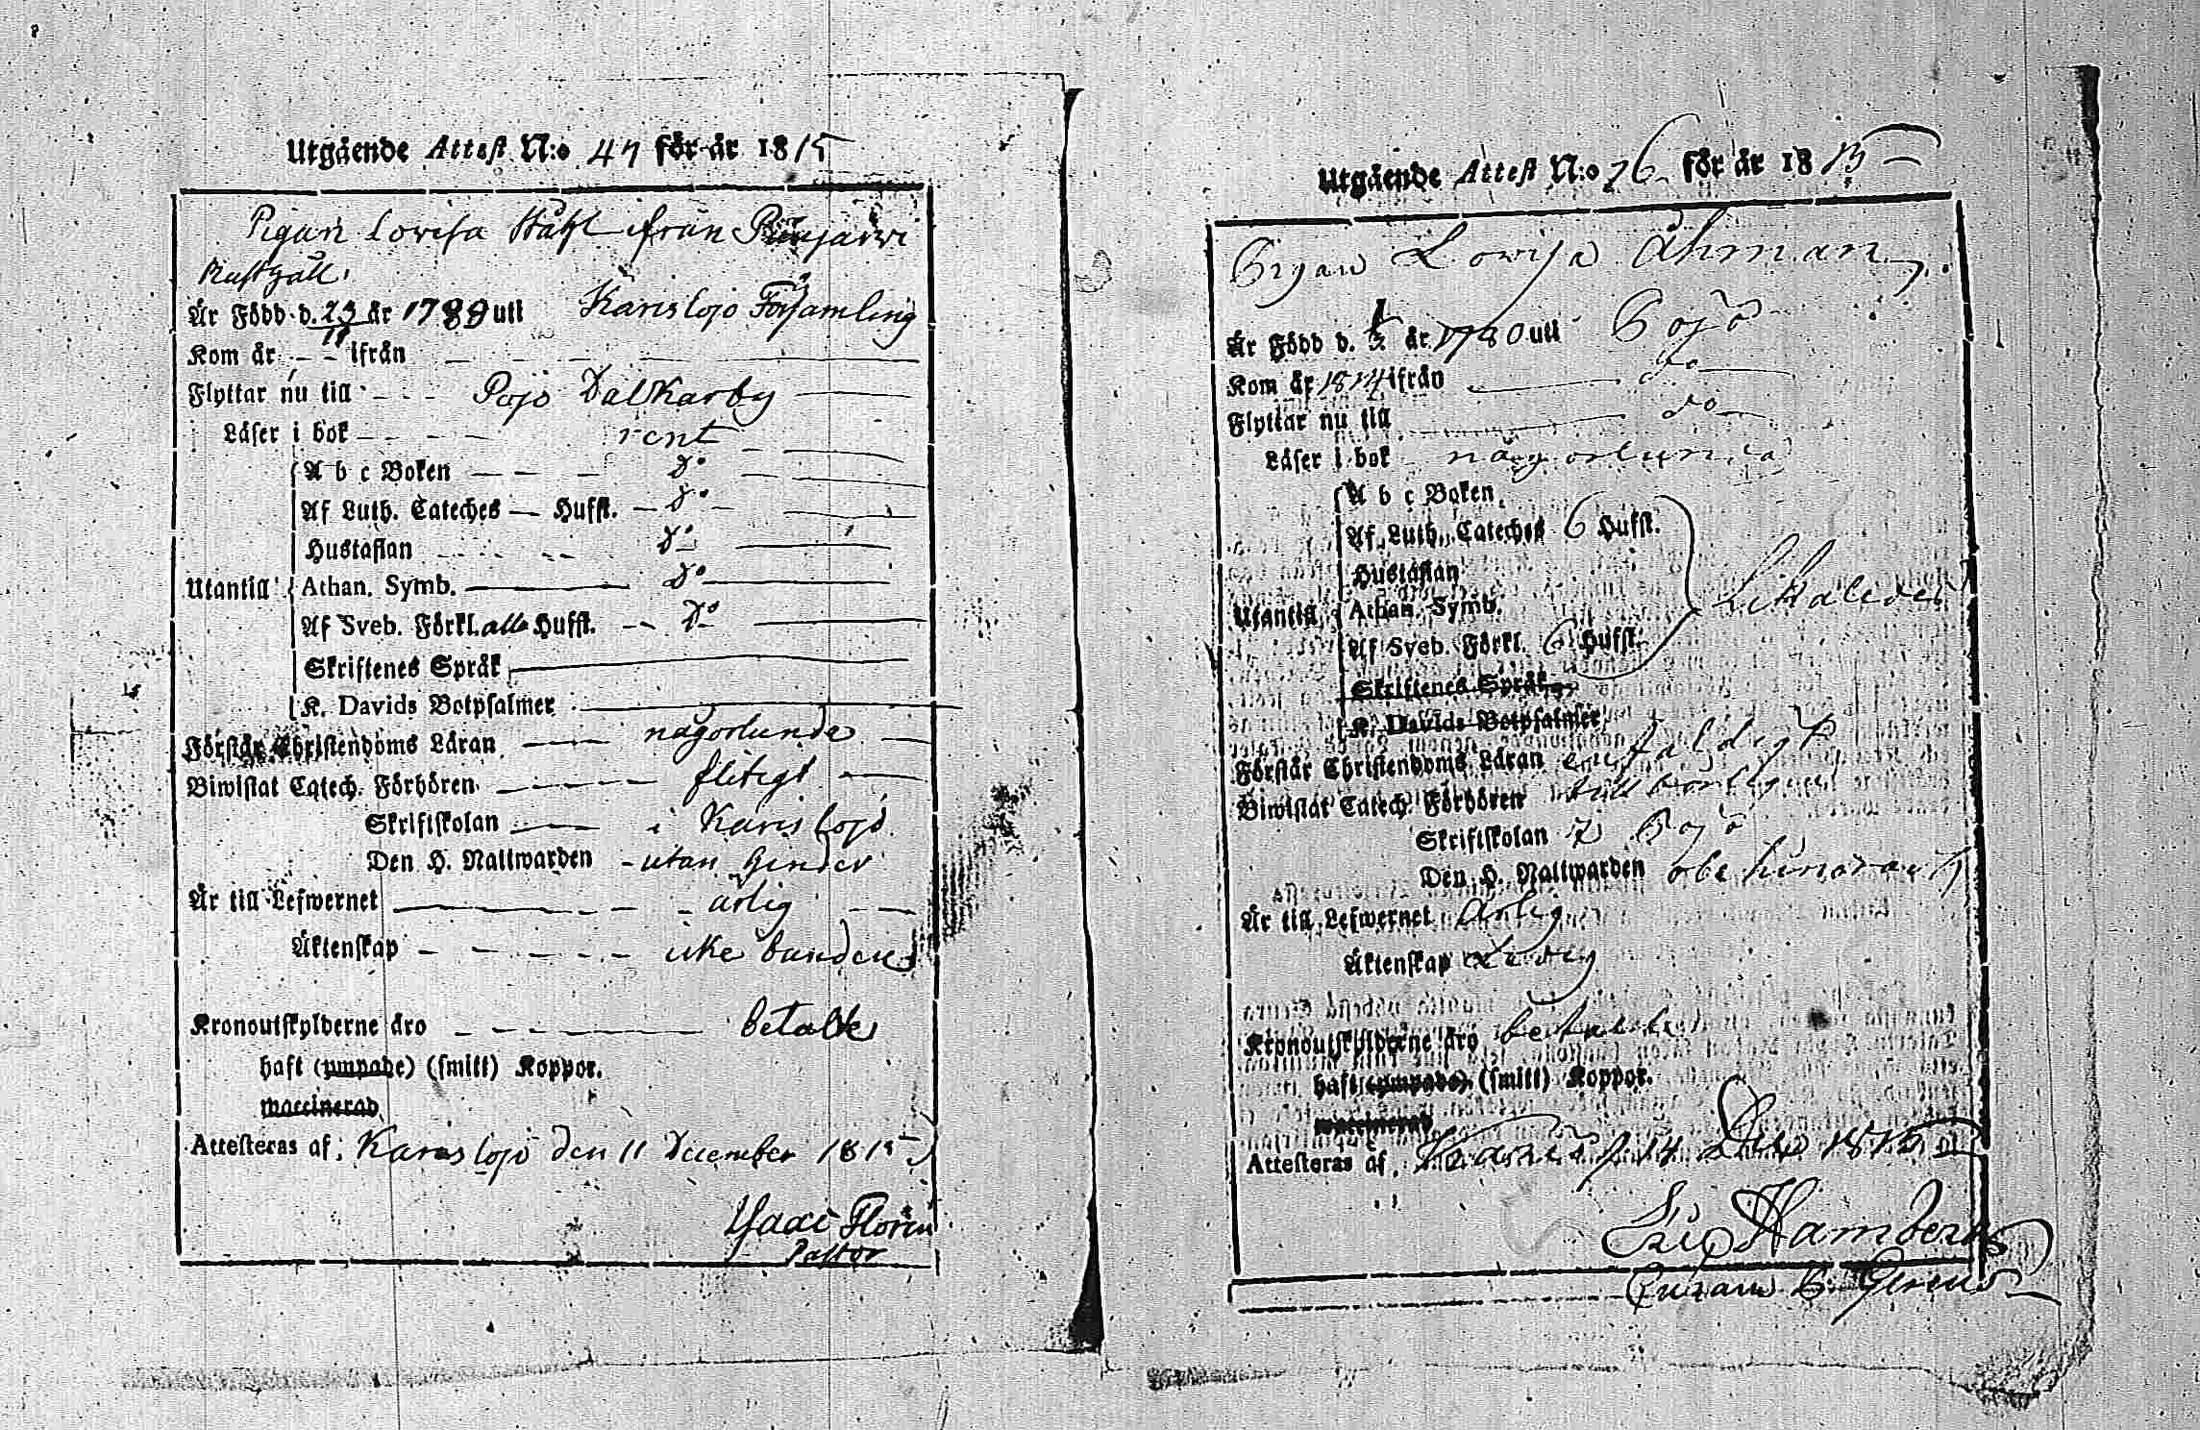 Utgående Attest N:o 47 för år 1815
Pigan Lovisa Ståhl ifrån
Rusthåll.
Är Född d. 23/11 år 1789 uti Karislojo Församling
Kom år - - ifrån
Flyttar nu till - - Pojo Dalkarby
Läser i bok - - - rent
A b c Boken - - - do
Af Luth. Cateches - Hufst. - do -
Hustaflan - - - do
Athan. Symb. - do
Utantill
Af Sveb. Förkl. alla Hufst. - - do
Skriftenes Språk
K. Davids Botpsalmer
Förstår Christendoms Läran - någorlunda -
Biwistat Catech. Förhören - - - flitigt -
Skriftskolan - i Karislojo
Den H. Nattwarden - utan hinder
Är till Lefwernet - - - ärlig - -
Äktenskap - - - - - icke bunden
Kronoutskylderne äro - - - - betalte
haft (ympade) (smitt) Koppor.
waccinerad
Attesteras af, Karislojo den 11 December 1815
Isaac Florin
Pastor
Utgående Attest N:o 76 för år 1815
Pigan Lovisa Åhman
Är Född d. år 1780 uti Pojo
Kom år 1814 ifrån do
Flyttar nu till do
Läser i bok någorlunda
A b c Boken
Af Luth. Cateches 6 Hufst.
Hustaflan
Utantill Athan. Symb. Likaledes
Af Sveb. Förkl. 6 Hufst.
Skriftenes Språk
K. Davids Botpsalmer
Förstår Christendoms Läran enfaldigt
Biwistat Catech. Förhören
Skriftskolan i Pojo
Den H. Nattwarden obehindrad
Är till Lefwernet ärlig
Äktenskap Ledig
Kronoutskylderne äro betalte
haft (ympade) (smitt) Koppor.
waccinerad
Attesteras af, d. 14 Dec 1815
Eric Hamberg